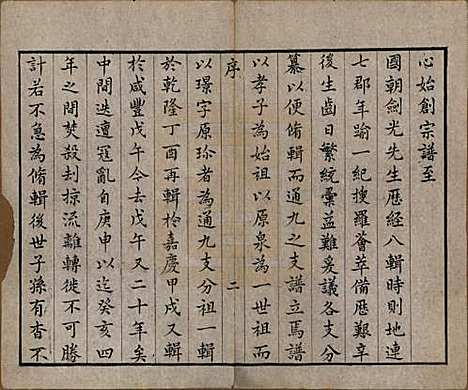 心始創宗譜至
國朝劍光先生歷經八輯時則地連
七郡年踰一紀搜羅薈萃備歷艱辛
後生齒日繁統彙益難爰議各支分
纂以便脩輯而通九之支譜立焉譜
以孝子為始祖以原泉為一世祖而
序 二
以璟字原珎者為通九支分祖一輯
於乾隆丁酉再輯於嘉慶甲戌又輯
於咸豐戊午今去戊午又二十年矣
中間迭遭寇亂自庚申以迄癸亥四
年之間焚殺刦掠流離轉徙不可勝
計若不亟為脩輯後世子孫有杳不